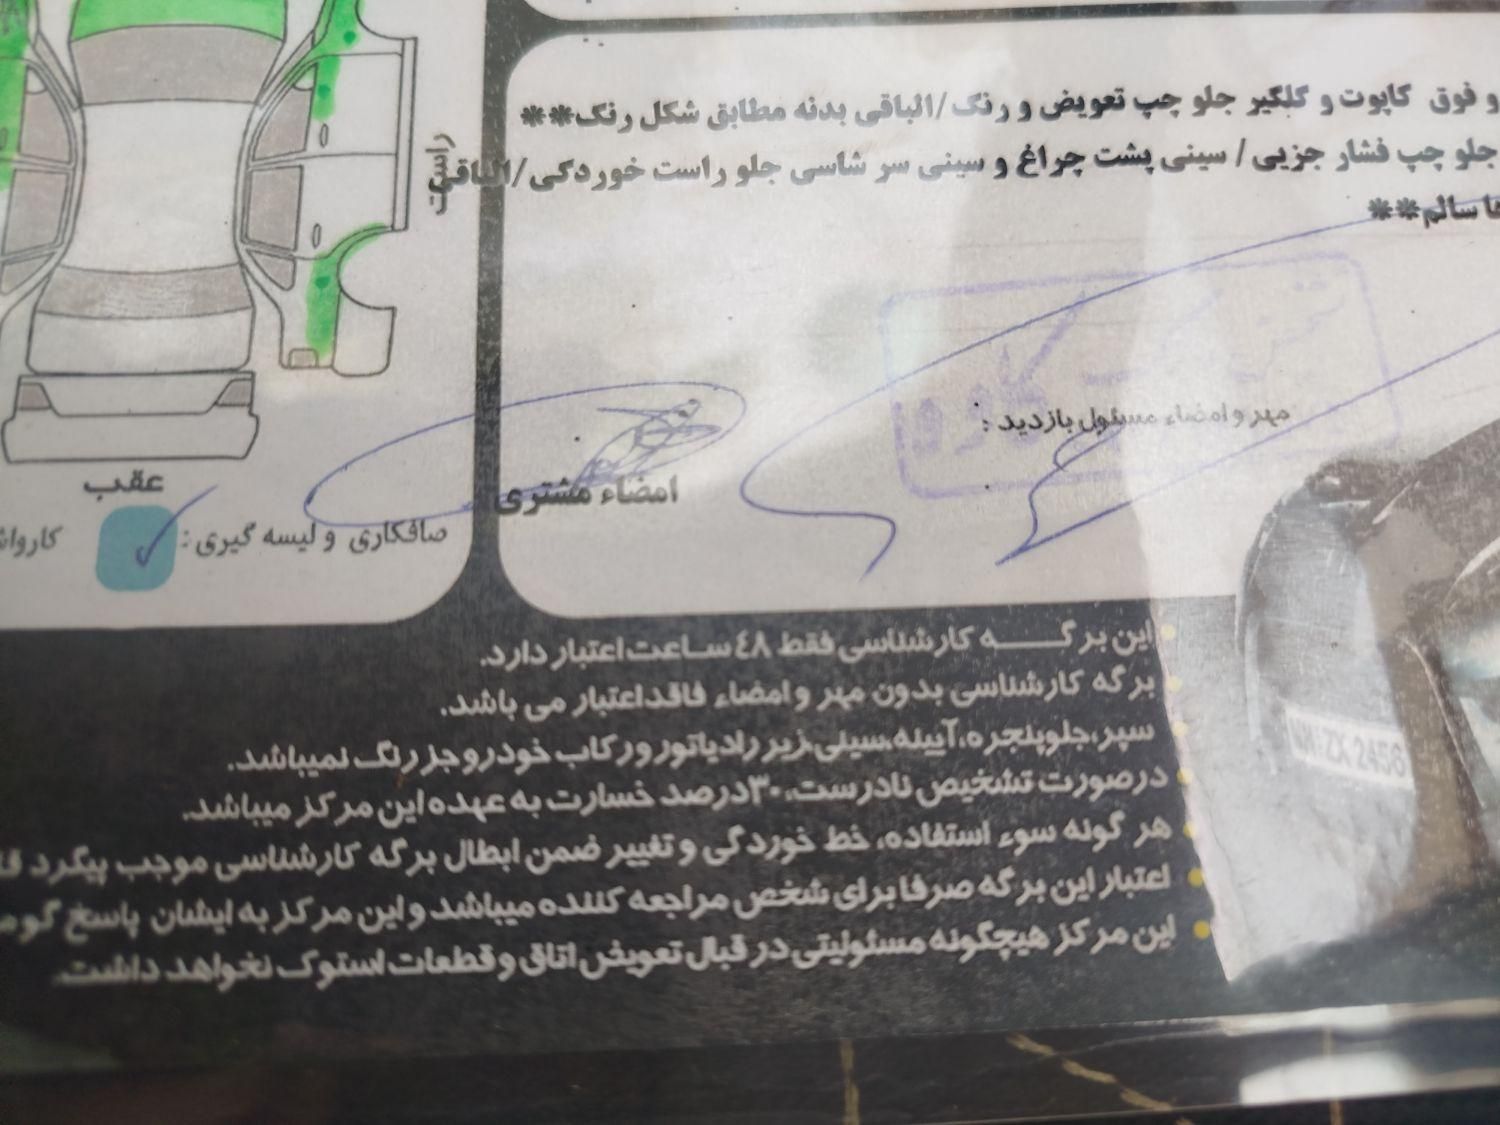 و فوق کاپوت و گلگیر جلو چپ تعویض و رنگ/الباقی بدنه مطابق شکل رنگ**
جلو چپ فشار جزیی/ سینی پشت چراغ و سینی سر شاسی جلو راست خوردگی/الباقی
ها سالم**
راست
مهر و امضاء مسئول بازدید :
امضاء مشتری
عقب
صافکاری و لیسه گیری :
این برگه کارشناسی فقط ٤٨ ساعت اعتبار دارد.
برگه کارشناسی بدون مهر و امضاء فاقد اعتبار می باشد.
سپر،جلوپنجره،آیینه،سینی،زیر رادیاتور و رکاب خودرو جز رنگ نمیباشد.
در صورت تشخیص نادرست، ۳۰ درصد خسارت به عهده این مرکز میباشد.
هر گونه سوء استفاده، خط خوردگی و تغییر ضمن ابطال برگه کارشناسی موجب پیگرد
اعتبار این برگه صرفا برای شخص مراجعه کننده میباشد و این مرکز به ایشان پاسخ
این مرکز هیچگونه مسئولیتی در قبال تعویض اتاق و قطعات استوک نخواهد داشت.
ZX 2456